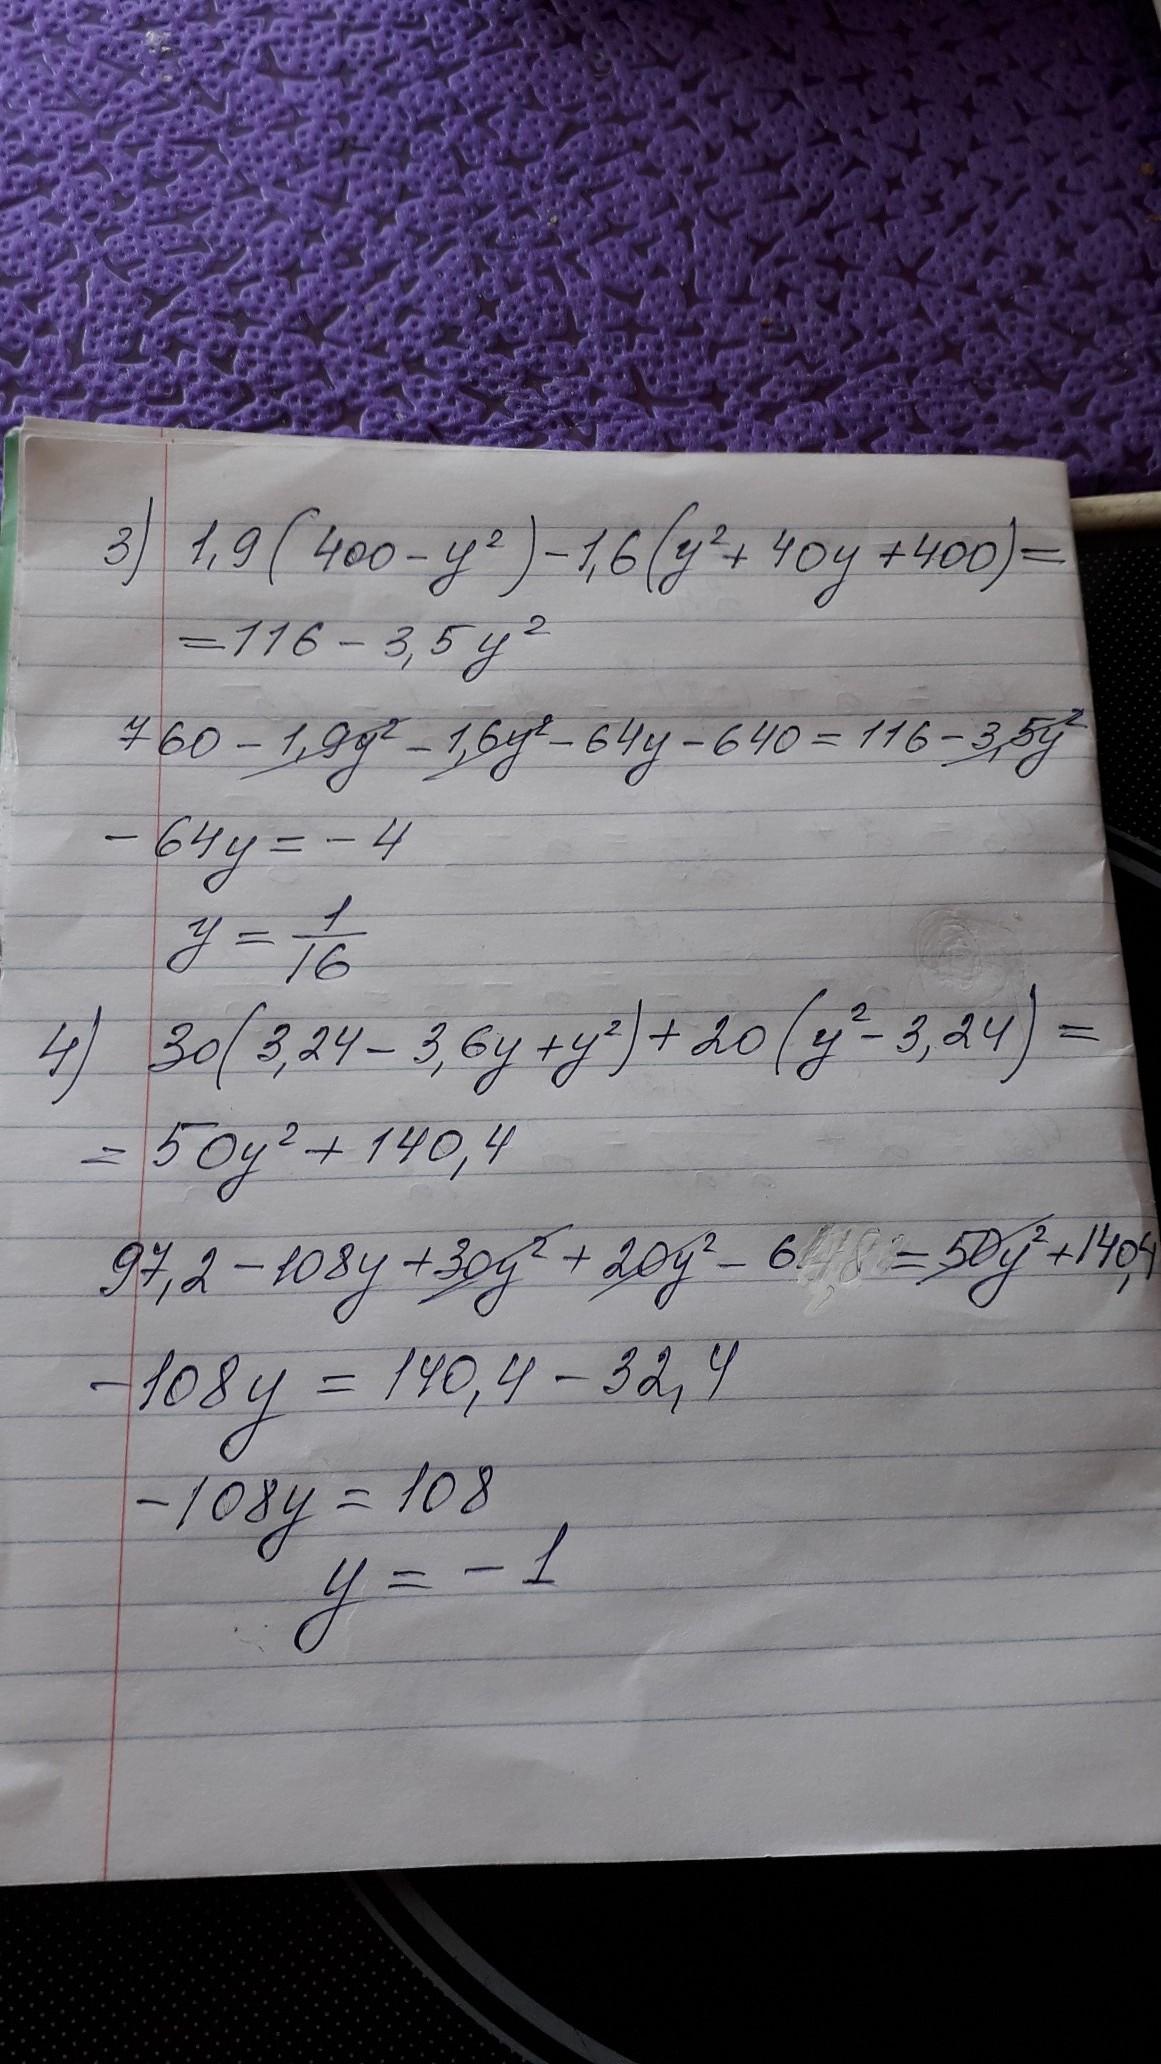 3) 1,9(400 - y²) - 1,6(y² + 40y + 400) =
= 116 - 3,5y²
760 - 1,9y² - 1,6y² - 64y - 640 = 116 - 3,5y²
- 64y = - 4
y = 1/16
4) 30(3,24 - 3,6y + y²) + 20(y² - 3,24) =
= 50y² + 140,4
97,2 - 108y + 30y² + 20y² - 64,8 = 50y² + 140,4
- 108y = 140,4 - 32,4
- 108y = 108
y = - 1